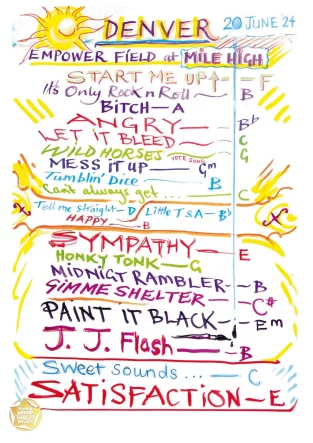 DENVER 20 JUNE '24
EMPOWER FIELD at MILE HIGH
START ME UP — F
It's Only Rock n Roll — B
BITCH — A
ANGRY — Bb
LET IT BLEED — C
WILD HORSES VOTE SONG G
MESS IT UP — Gm
Tumblin' Dice B
Can't always get ... C
Tell me Straight — D Little T & A — Bb
HAPPY — B
SYMPATHY — E
HONKY TONK — G
MIDNIGT RAMBLER — B
GIMME SHELTER — C#
PAINT IT BLACK — Em
J. J. Flash — B
Sweet Sounds ... — C
SATISFACTION — E